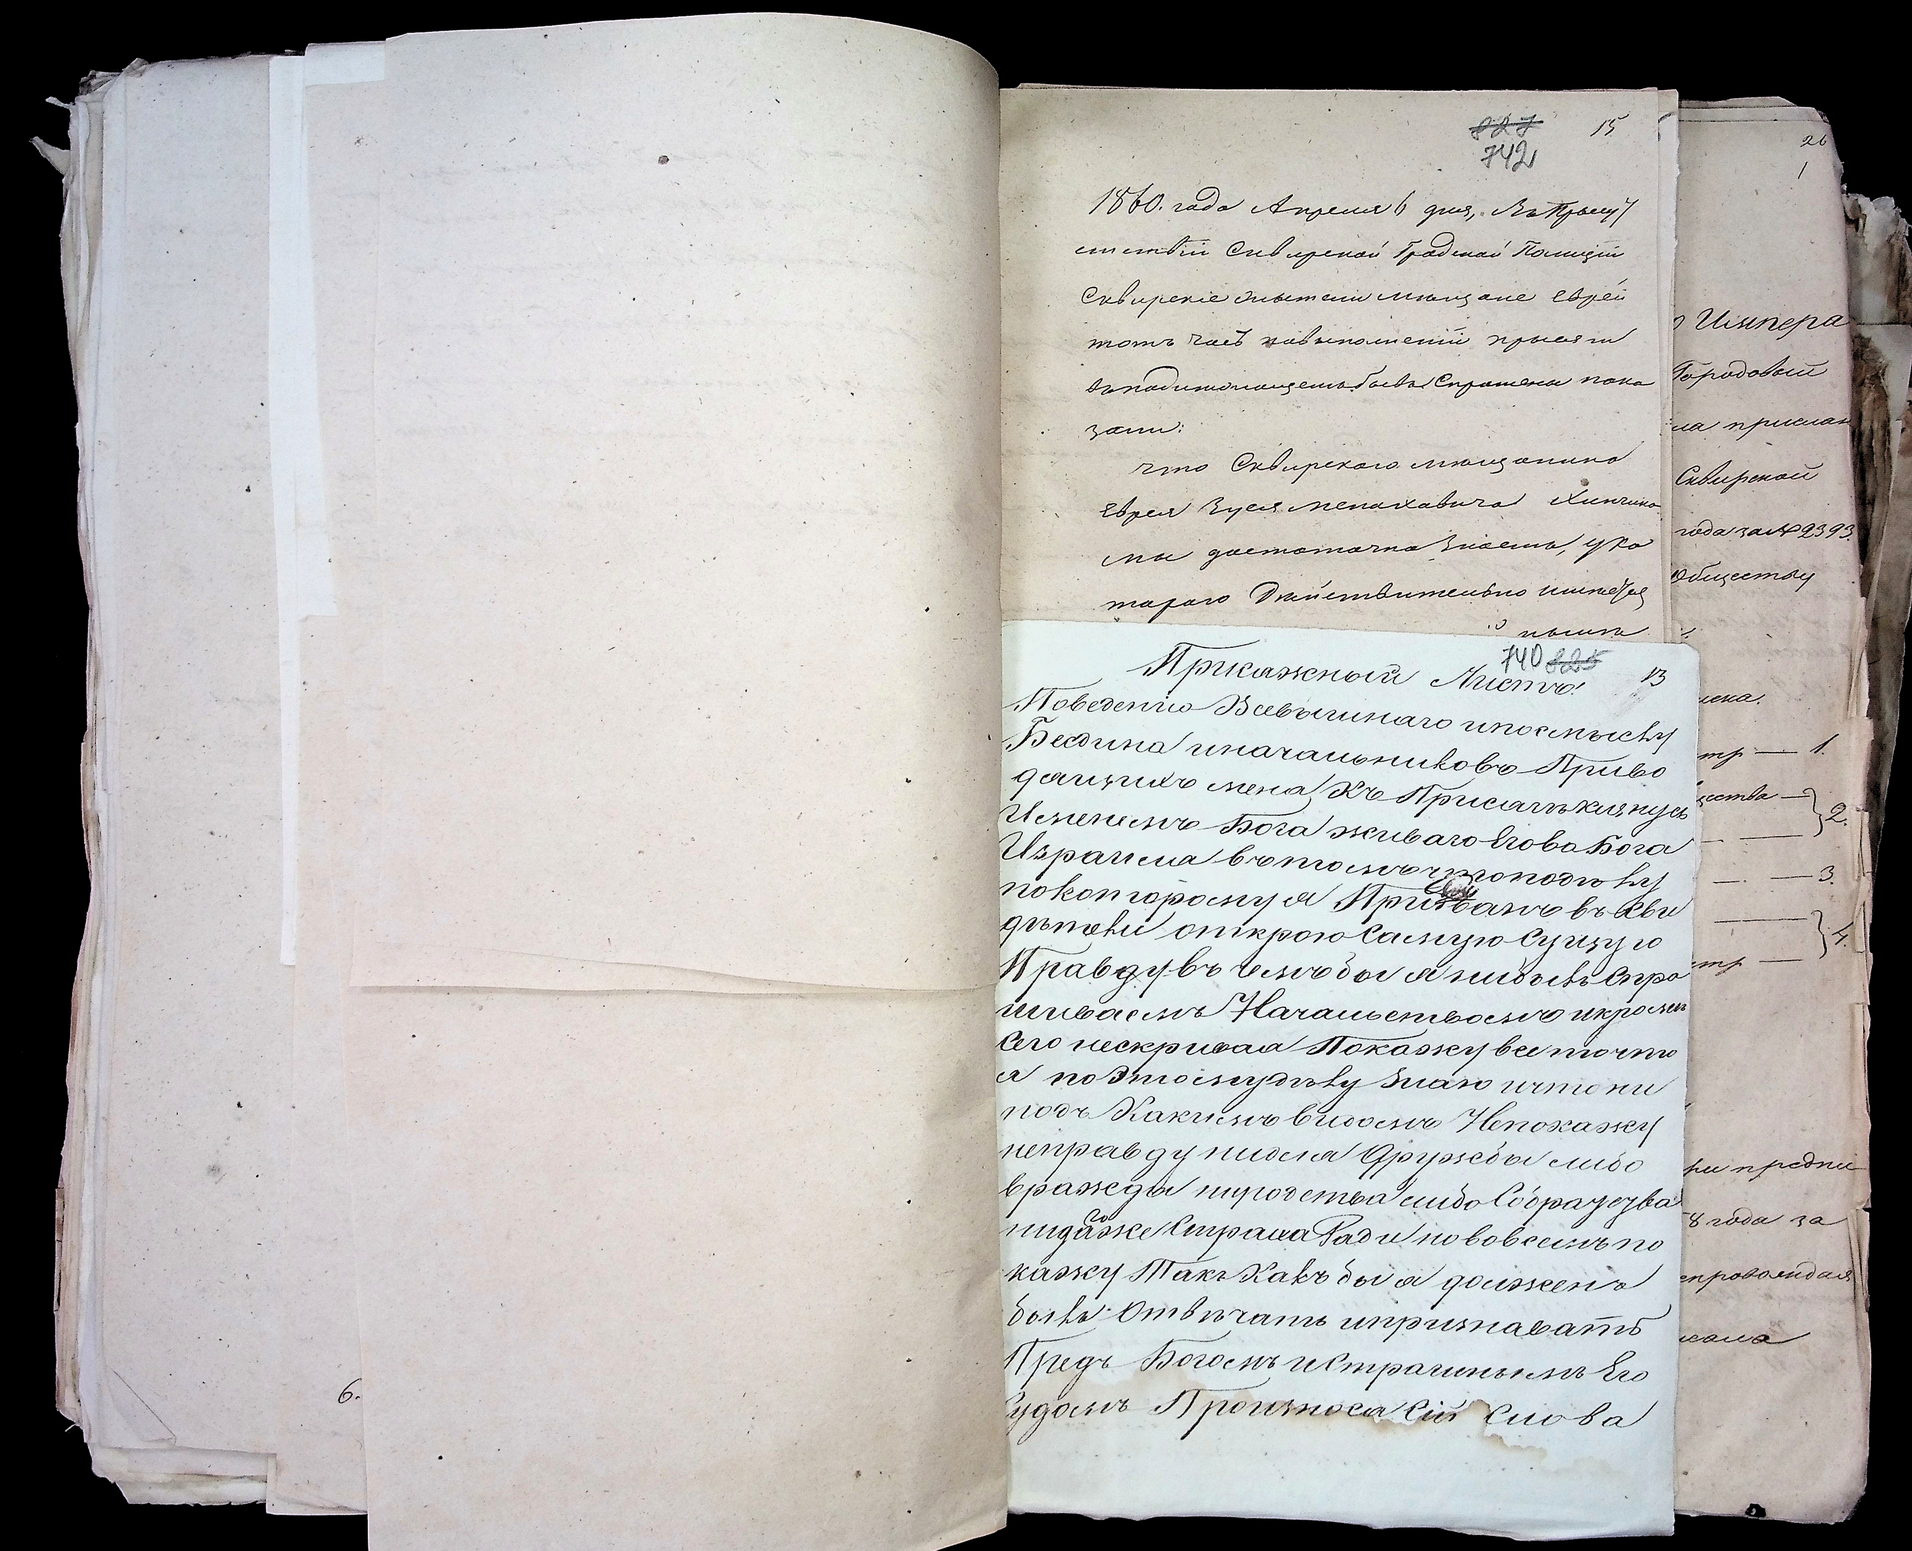 827 15
742
1860. года Апреля 6 дня, Въ Прысу
тствіи Сквирской Градской Полиціи
Сквирскіе жытели мещане Евреи
тотъ часъ по выполненіи прысяги
спрошены пока
зали:
что Сквирского мещанина
Еврея Зуся Менаховича
мы достаточно знаемъ, у ко
тораго Действительно имеется
740 825 13
Прикажный Листъ!
Поведению Всевышнаго и посмыслу
Бесдина и начальниковъ Приво
дящихъ меня Къ Присягѣ клянусь
Именемъ Бога живаго Егова Бога
Израиля въ томъ что по делу
по которому я Призванъ въ Сви
дѣтели открою Самую Сущую
Правду въ чемъ бы я нибылъ Спра
шиваемъ Начальствомъ и кромѣ
Сего нескривая Покажу все то что
я по Этому дѣлу Знаю и что ни
подъ Какимъ видомъ Непокажу
неправду ни для Дружбы либо
вражды ни родства либо
ни даже Страха Ради но во всемъ по
кажу Такъ Какъ бы я долженъ
былъ Отвѣчать и признавать
Предъ Богомъ и Страшнымъ Его
Судомъ Произнося Сій Слова
26
1
Импера
Городовый
ла прислан
Сквирской
года за № 2393.
Обществу
1.
щества
2.
3.
4.
ри предпи
8 года за
6.